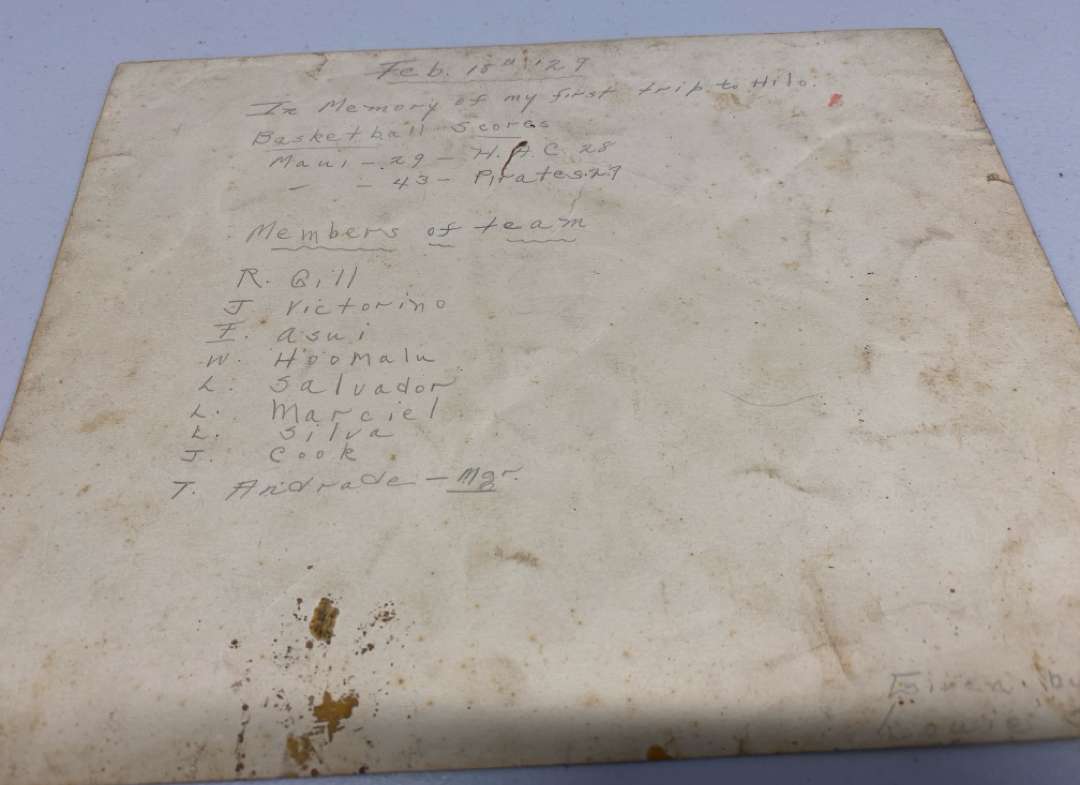 Feb. 18th '29
In Memory of my first trip to Hilo.
Basketball Scores
Maui - 29 - H.A.C. 28
- - 43 - Pirates 29
Members of team
R. Gill
J Victorino
F. Asui
W. Hoomalu
L. Salvador
L. Marciel
L. Silva
J. Cook
T. Andrade - Mgr.
Given by
Louie